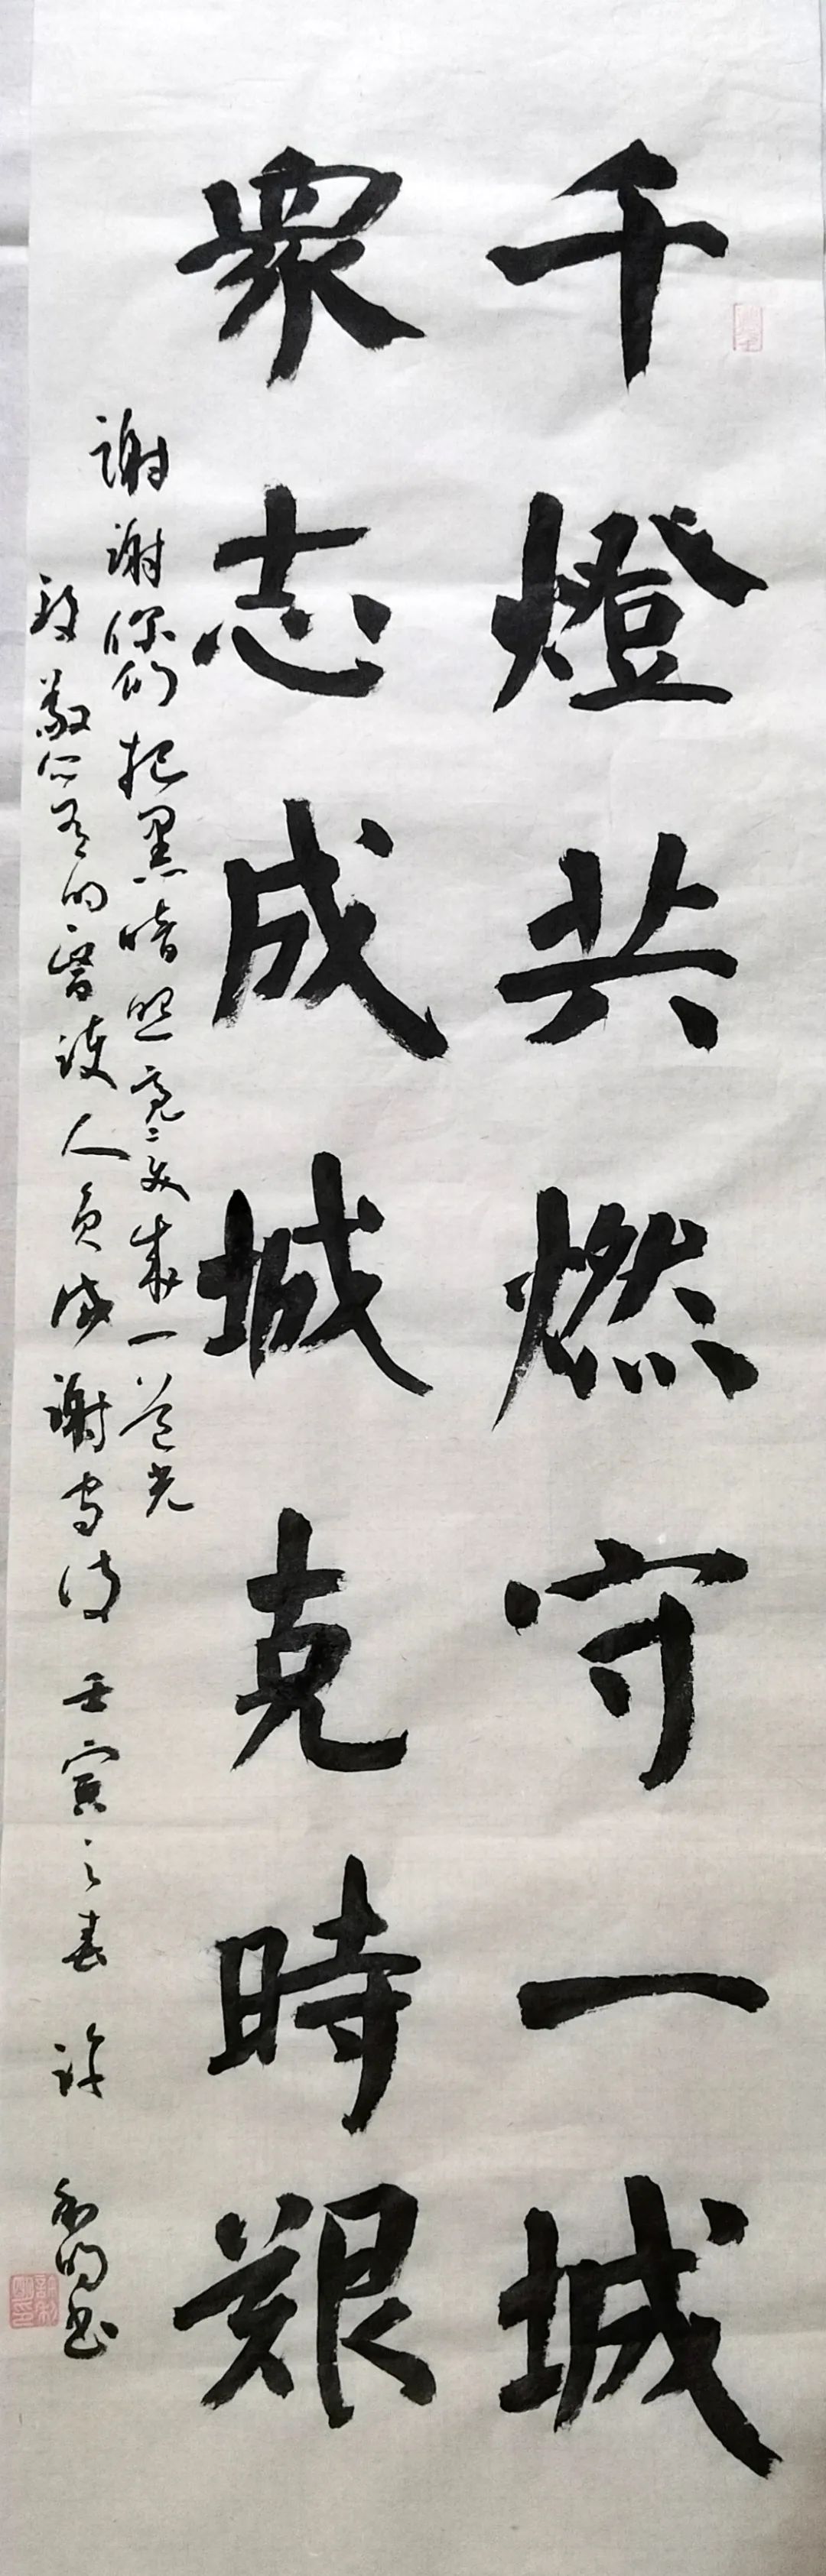 千燈共燃守一城
眾志成城克時艱
謝謝你們把黑暗照亮變成一道光
致敬所有的醫護人員感謝有你 壬寅之春 許 利明书